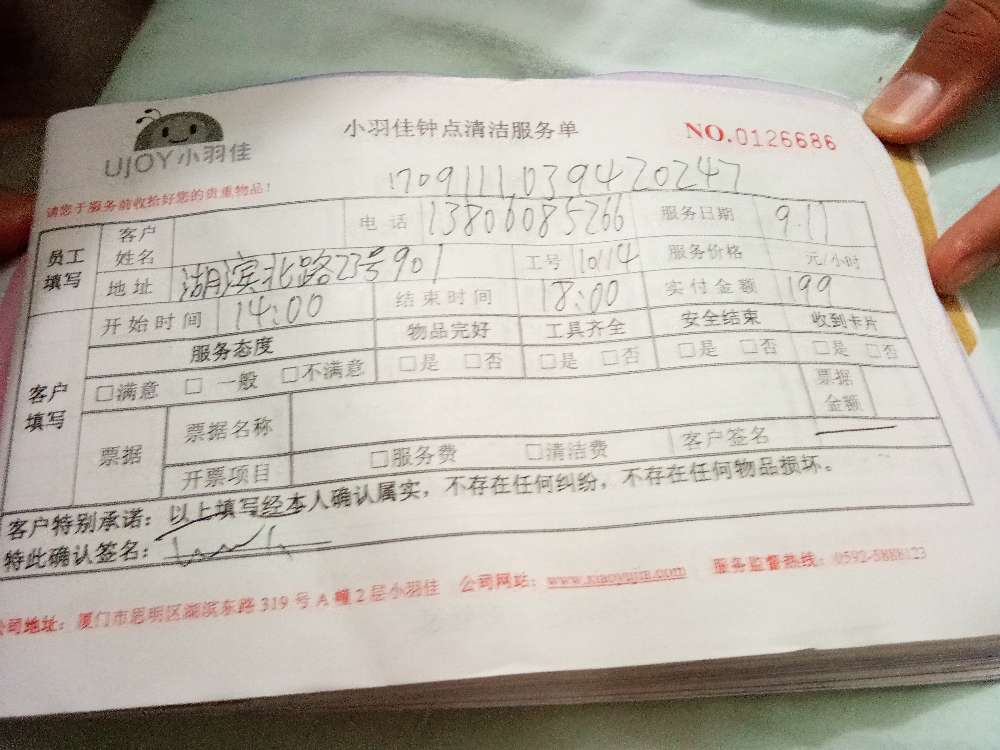 UJOY小羽佳
小羽佳钟点清洁服务单
NO.0126686
请您于服务前收拾好您的贵重物品！
1709111039420247
员工填写 客户姓名 电话 13806085266 服务日期 9.11
地址 湖滨北路23号901 工号 10114 服务价格 元/小时
开始时间 14:00 结束时间 18:00 实付金额 199
客户填写 服务态度 物品完好 工具齐全 安全结束 收到卡片
□满意 □一般 □不满意 □是 □否 □是 □否 □是 □否 □是 □否
票据 票据名称 票据金额
开票项目 □服务费 □清洁费 客户签名
客户特别承诺：以上填写经本人确认属实，不存在任何纠纷，不存在任何物品损坏。
特此确认签名：
公司地址：厦门市思明区湖滨东路319号A幢2层小羽佳 公司网站：www.xiaoyujia.com 服务监督热线：0592-5888123